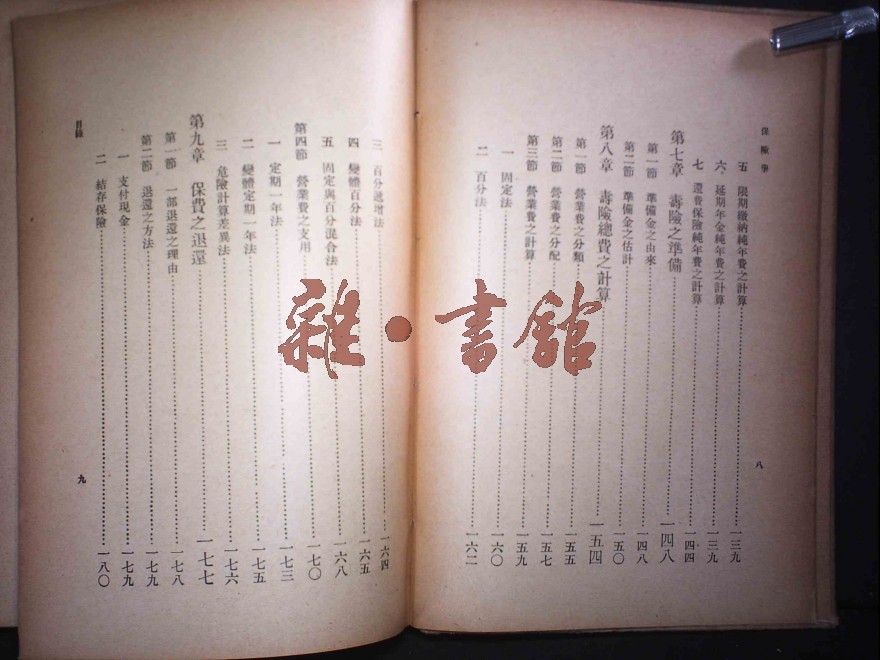 保險學
五　限期繳納純年費之計算……一三九
六、延期年金純年費之計算……一三九
七　還費保險純年費之計算……一四四
第七章　壽險之準備……一四八
第一節　準備金之由來……一四八
第二節　準備金之估計……一五〇
第八章　壽險總費之計算……一五四
第一節　營業費之分類……一五五
第二節　營業費之分配……一五七
第三節　營業費之計算……一五九
一　固定法……一六〇
二　百分法……一六二
八
三　百分遞增法……一六四
四　變體百分法……一六五
五　固定與百分混合法……一六八
第四節　營業費之支用……一七〇
一　定期一年法……一七三
二　變體定期一年法……一七五
三　危險計算差異法……一七六
第九章　保費之退還……一七七
第一節　一部退還之理由……一七八
第二節　退還之方法……一七九
一　支付現金……一七九
二　結存保險……一八〇
目錄
九
雜·書館